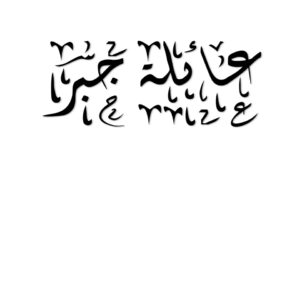 عائلة جبر